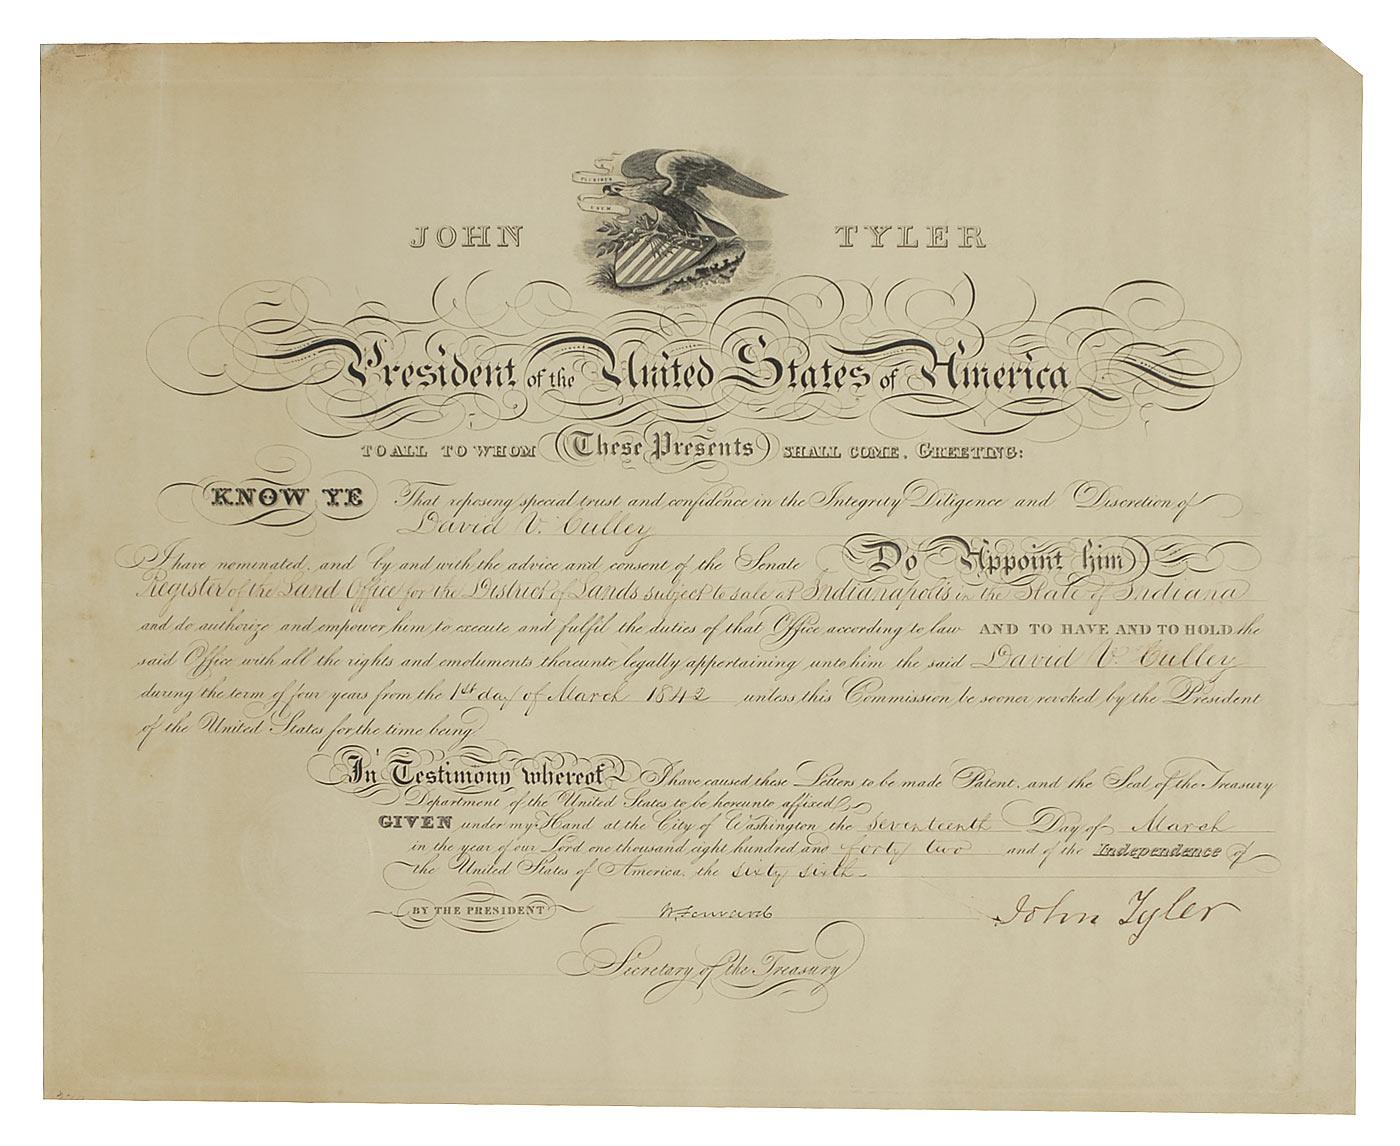 PLURIBUS
UNUM
JOHN TYLER
President of the United States of America
TO ALL TO WHOM These Presents SHALL COME, GREETING:
KNOW YE That reposing special trust and confidence in the Integrity Diligence and Discretion of
David V. Culley
I have nominated, and by and with the advice and consent of the Senate Do Appoint him
Register of the Land Office for the District of Lands subject to sale at Indianapolis in the State of Indiana
and do authorize and empower him to execute and fulfil the duties of that Office according to law AND TO HAVE AND TO HOLD the
said Office with all the rights and emoluments thereunto legally appertaining unto him the said David V. Culley
during the term of four years from the 1st day of March 1842 unless this Commission be sooner revoked by the President
of the United States for the time being
In Testimony whereof I have caused these Letters to be made Patent, and the Seal of the Treasury
Department of the United States to be hereunto affixed
GIVEN under my Hand at the City of Washington the seventeenth Day of March
in the year of our Lord one thousand eight hundred and forty two and of the Independence of
the United States of America, the sixty sixth.
BY THE PRESIDENT W Forward John Tyler
Secretary of the Treasury